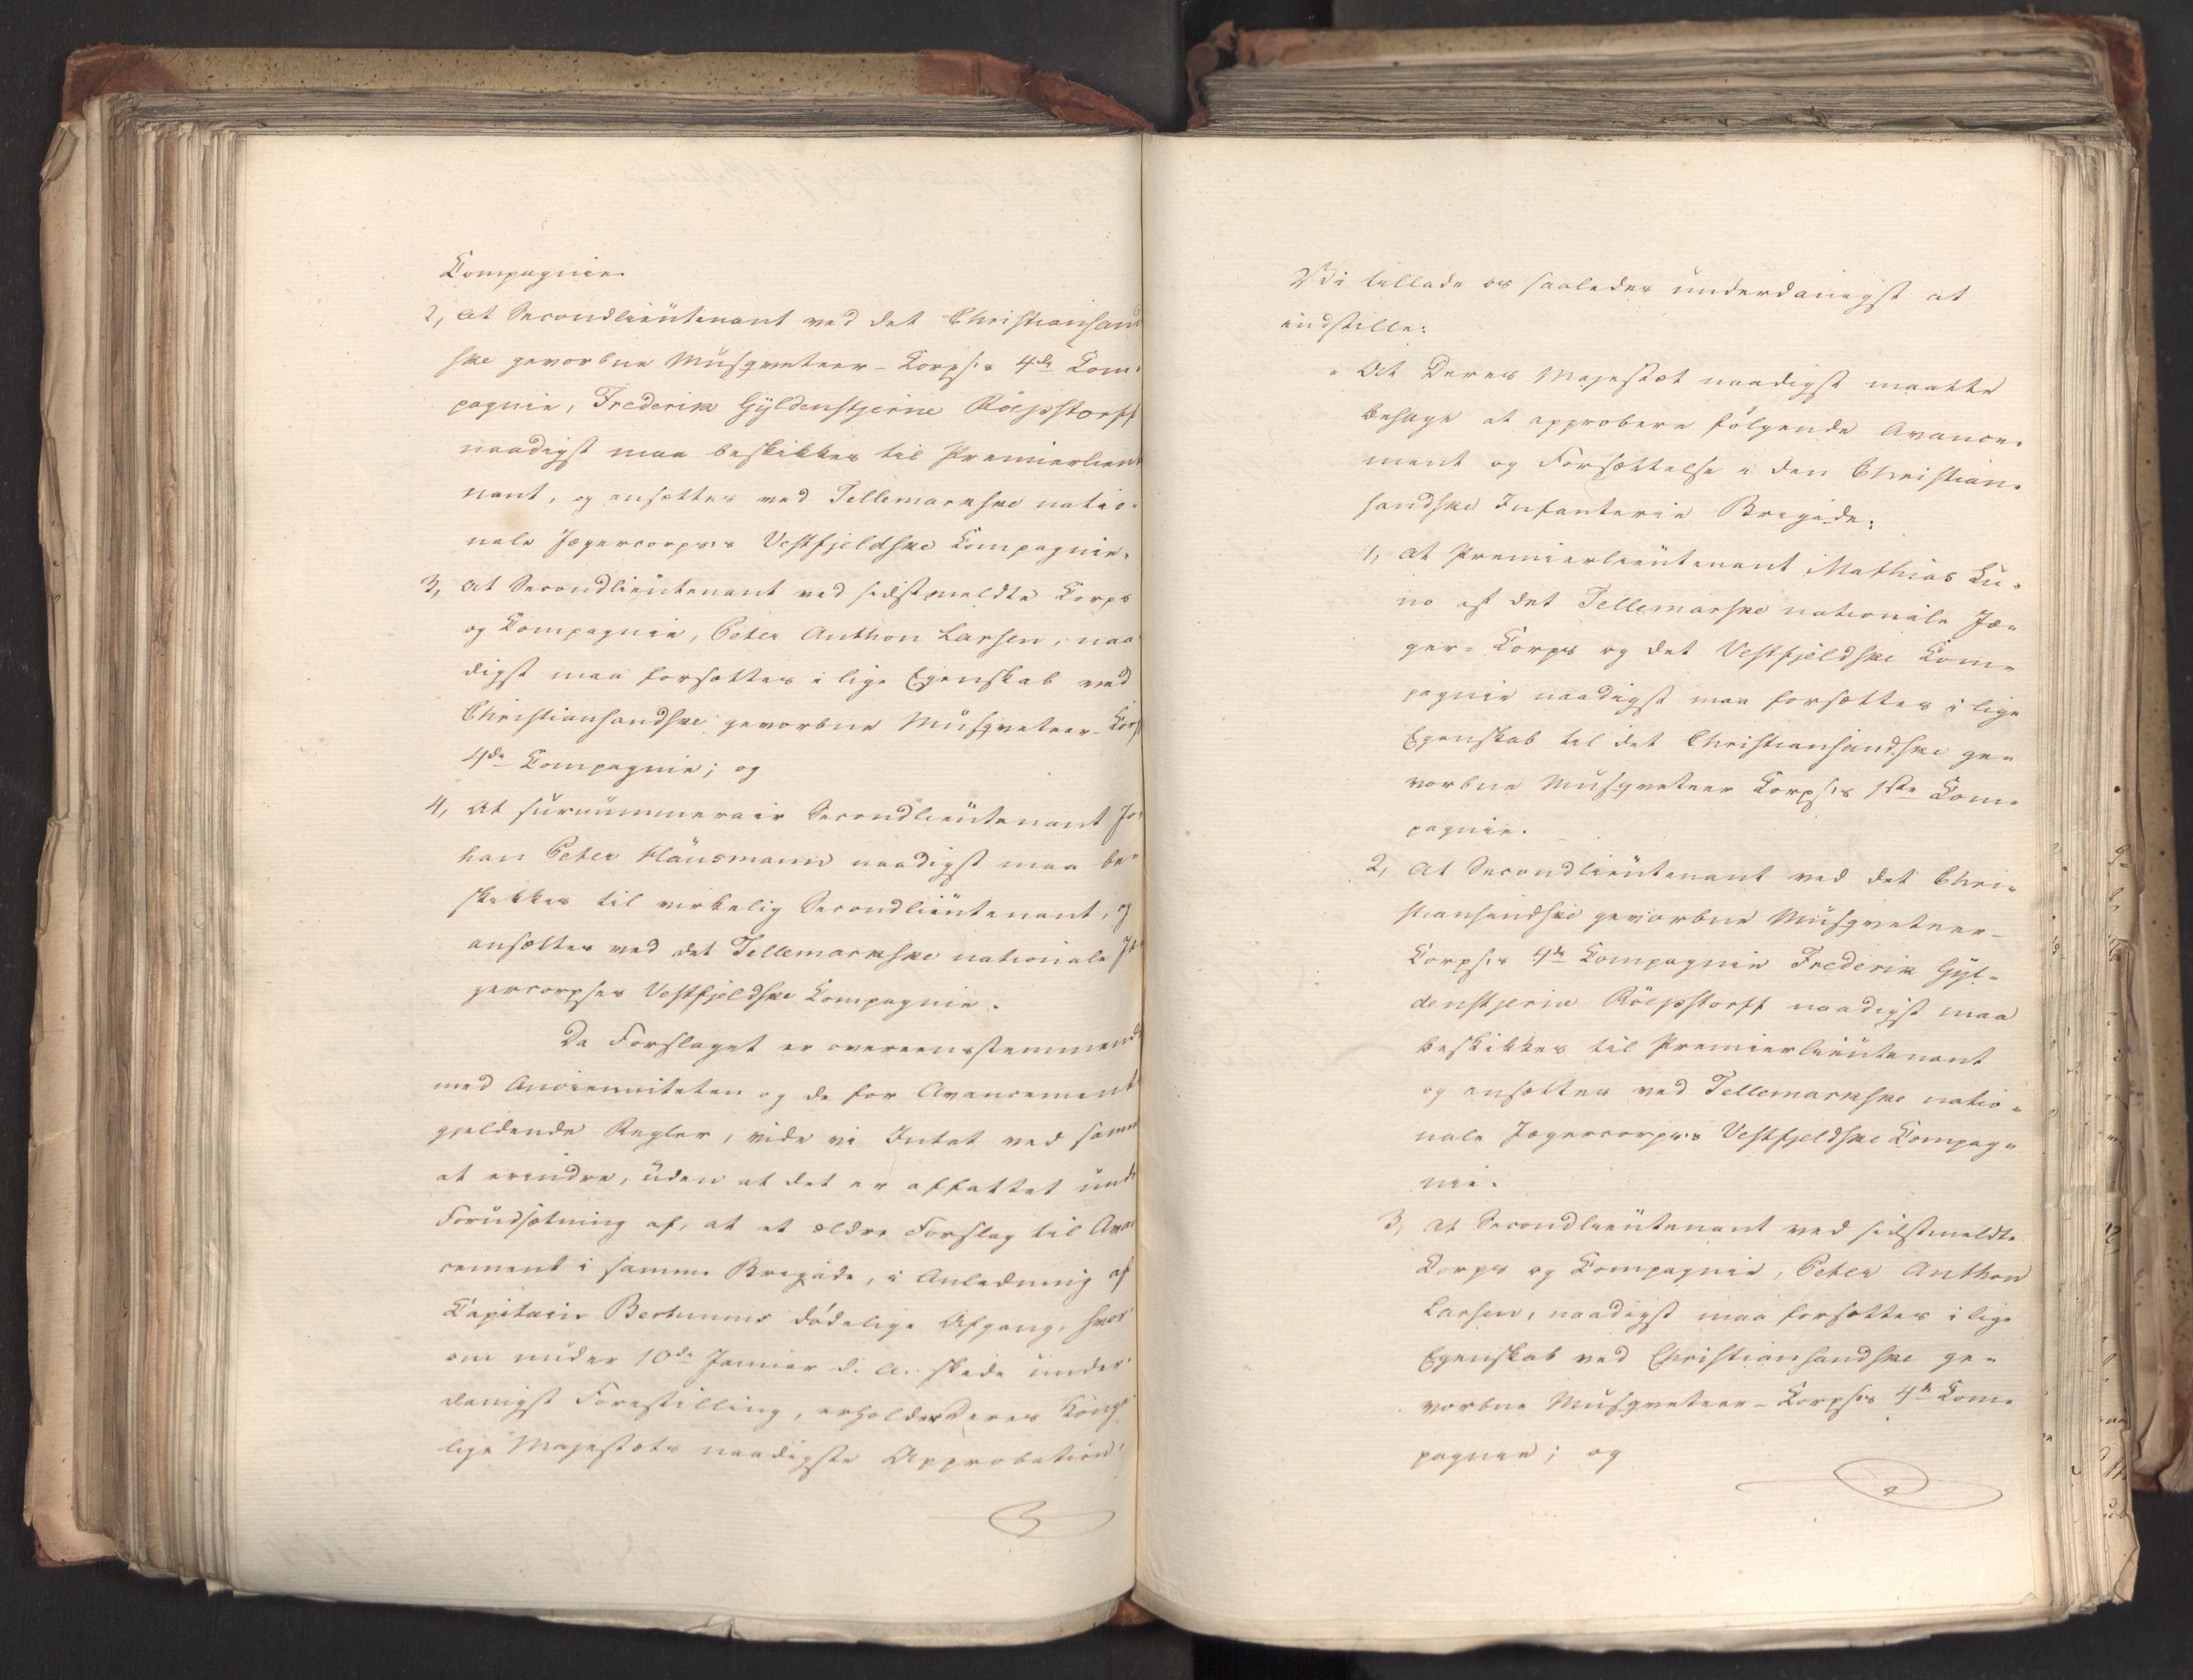 Compagnie.
2, at Secondlieutenant ved det Christiansand
ske gevorbne Musqveteer-Corps's 4de Com-
pagnie, Frederik Gyldenstjerne Röepstorff
naadigst maa beskikkes til Premierlieut
nant, og ansættes ved Tellemarkske natio-
nale Jægercorps's Vestfjeldske Compagnie.
3, at Secondlieutenant ved sidstmeldte Corps
og Compagnie, Peter Anthon Larsen, naa
digst maa forsættes i lige Egenskab ved
Christiansandske gevorbne Musqveteer-Corps
4de Compagnie; og
4, at surnummerair Secondlieutenant Jo-
han Peter Hausmann naadigst maa be-
skikkes til virkelig Secondlieutenant, og
ansættes ved det Tellemarkske nationale Jæ
gercorpses Vestfjeldske Compagnie.
Da Forslaget er overeensstemmende
med Ancienniteten og de for Avancement
gjeldende Regler, vide vi Intet ved samme
at erindre, uden at det er affattet unde
Forudsætning af, at et ældre Forslag til Avan
cement i samme Brigade, i Anledning af
Capitain dødelige Afgang, hvor
om under 10de Januar d. A. skede under
danigst Forestilling, erholder Deres Konge
lige Majestæts naadigste Approbation.
Vi tillade os saaledes underdanigst at
indstille:
" At Deres Majestæt naadigst maatte
behage at approbere følgende Avance-
ment og Forsættelse i den Christian-
sandske Infanterie Brigade:
1, at Premierlieutenant Mathias Cu-
no af det Tellemarske nationale Jæ-
ger-Corps og det Vestfjeldske Com-
pagnie naadigst maa forsættes i lige
Egenskab til det Christiansandske ge-
vorbne Musqveteer Corps's 1ste Com-
pagnie.
2, At Secondlieutenant ved det Chri-
stiansandske gevorbne Musqveteer-
Corps's 4de Compagnie Frederik Gyl-
denstjerne Röepstorff naadigst maa
beskikkes til Premierlieutenant
og ansættes ved Tellemarkske natio-
nale Jægercorps's Vestfjeldske Compag-
nie.
3, at Secondlieutenant ved sidstmeldte
Corps og Compagnie, Peter Anthon
Larsen, naadigst maa forsættes i lige
Egenskab ved Christiansandske ge-
vorbne Musqveteer-Corps's 4de Com-
pagnie; og